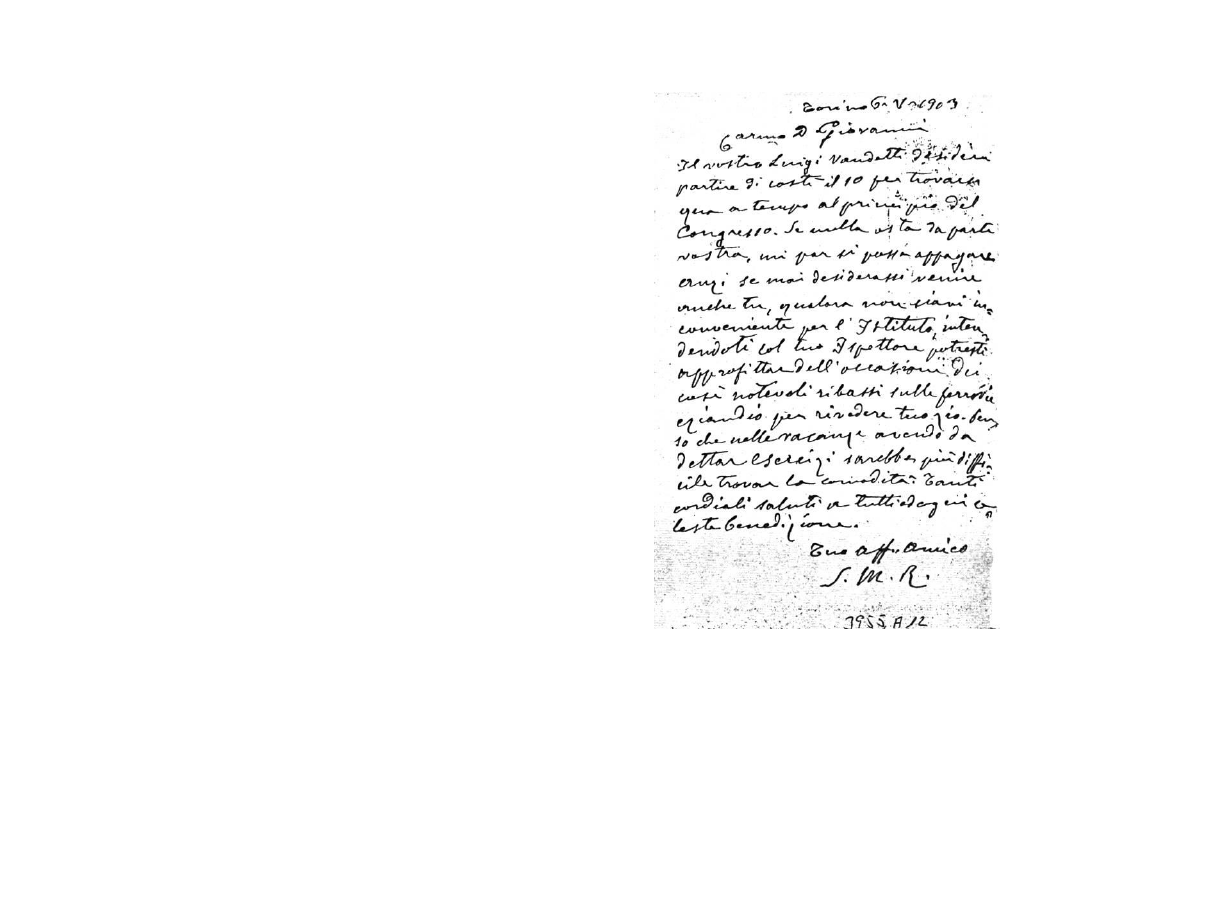 Torino 6-V-1903
Carmo D Giovanni
Il vostro Luigi Vaudetti desidera
partire di costì il 10 per trovarsi
qua a tempo al principio del
Congresso. Se nulla osta da parte
vostra, mi par si possa appagare
anzi se mai desiderassi venire
anche tu, qualora non siavi in=
conveniente per l'Istituto, inten=
dendoti col tuo Ispettore potresti
approfittar dell'occasione dei
così notevoli ribassi sulle ferrovie
eziandio per rivedere tuo zio. Pen=
so che nelle vacanze avendo da
dettar Esercizi sarebbe più diffi=
cile trovar la comodità. Tanti
cordiali saluti a tutti ed ogni ce=
leste benedizione.
Tuo aff. Amico
S. M. R.
3955 A 12